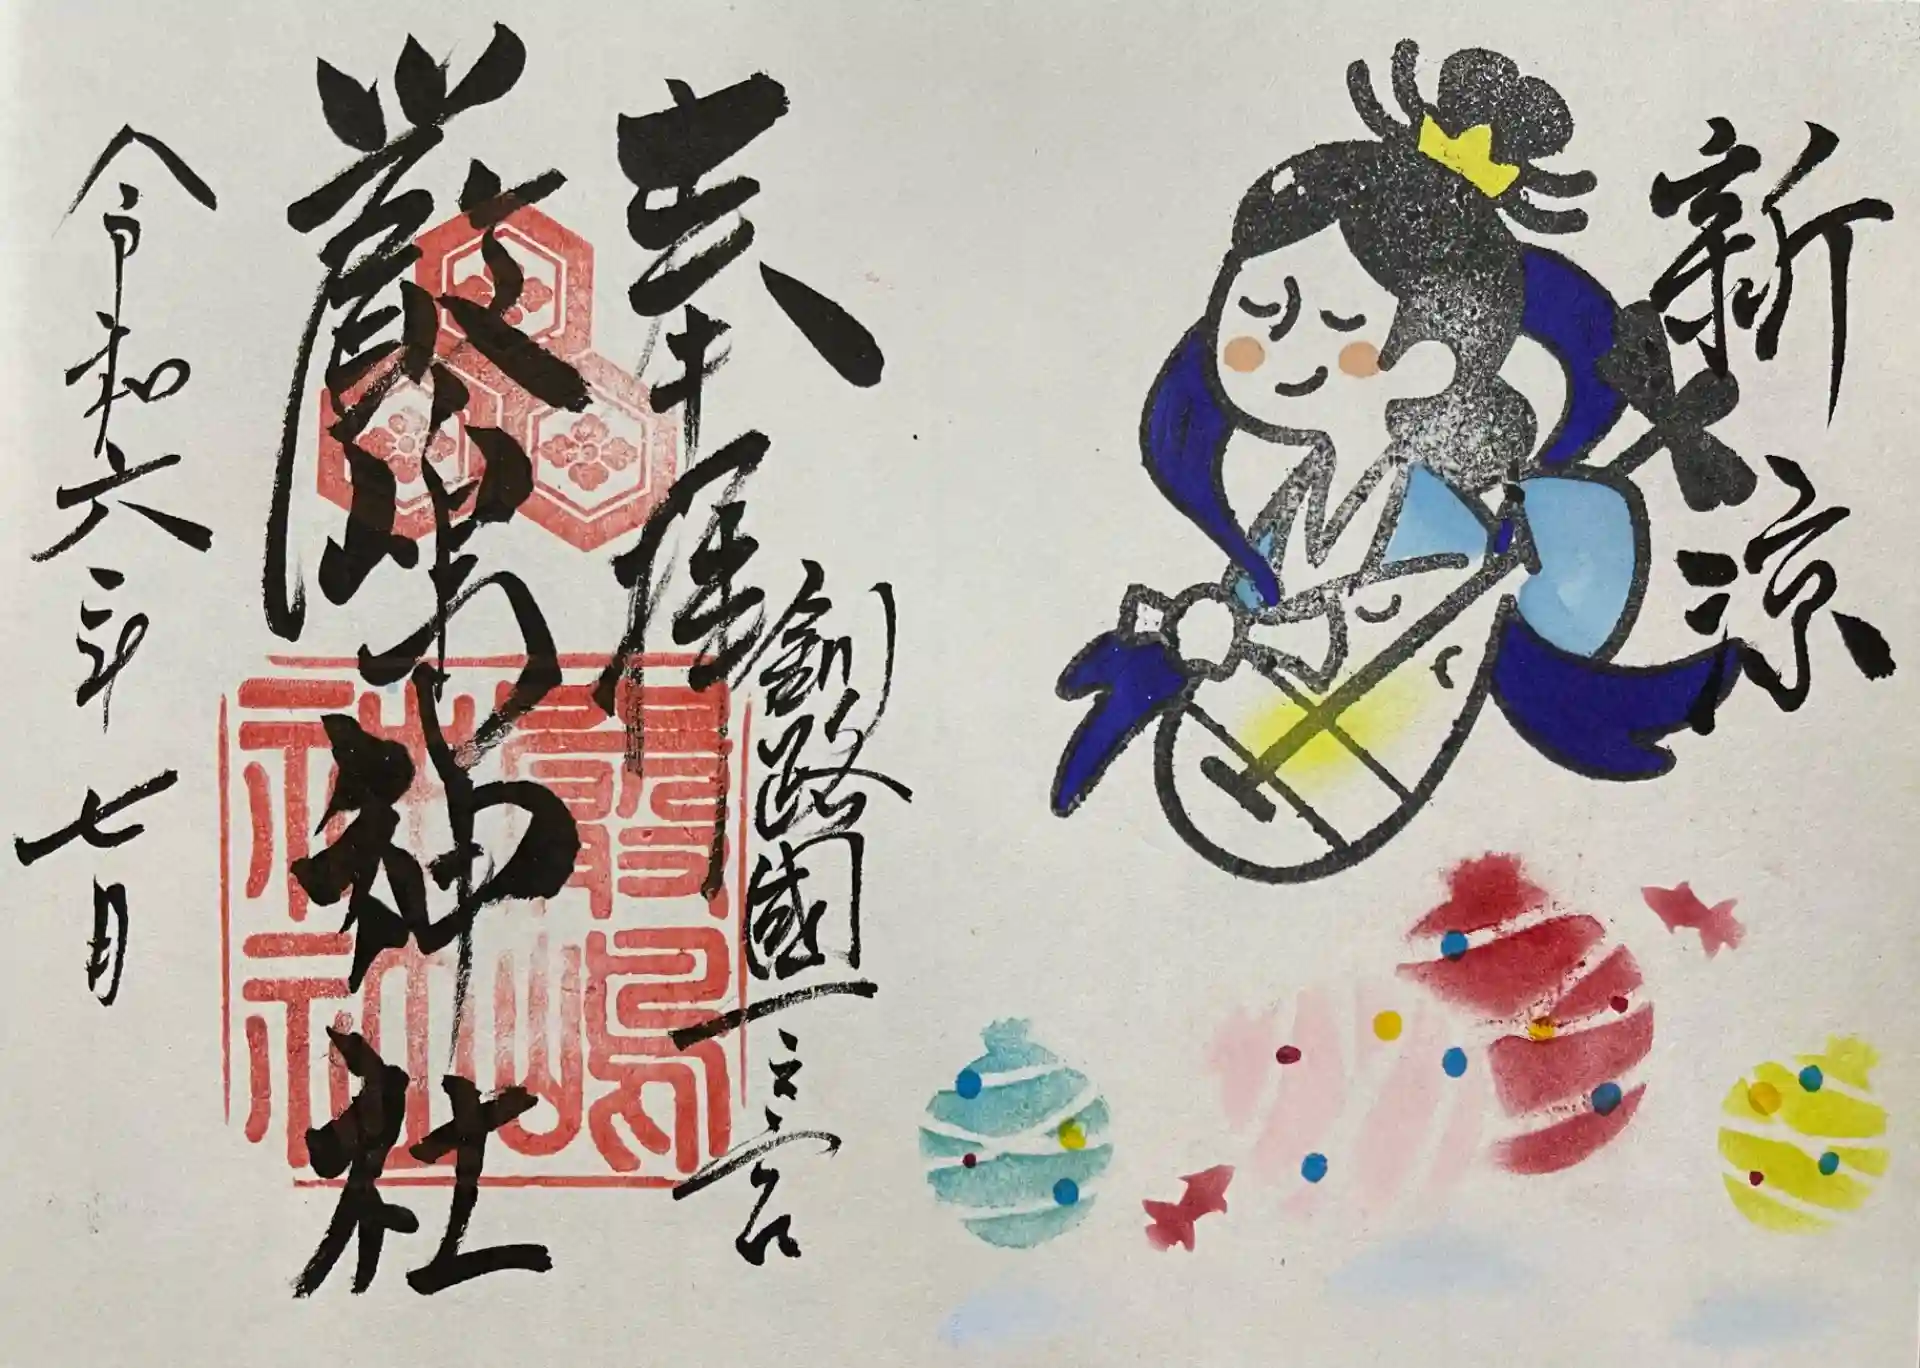 新涼
奉拝
釧路國一之宮
厳島神社
令和六年七月
嚴嶋
神社